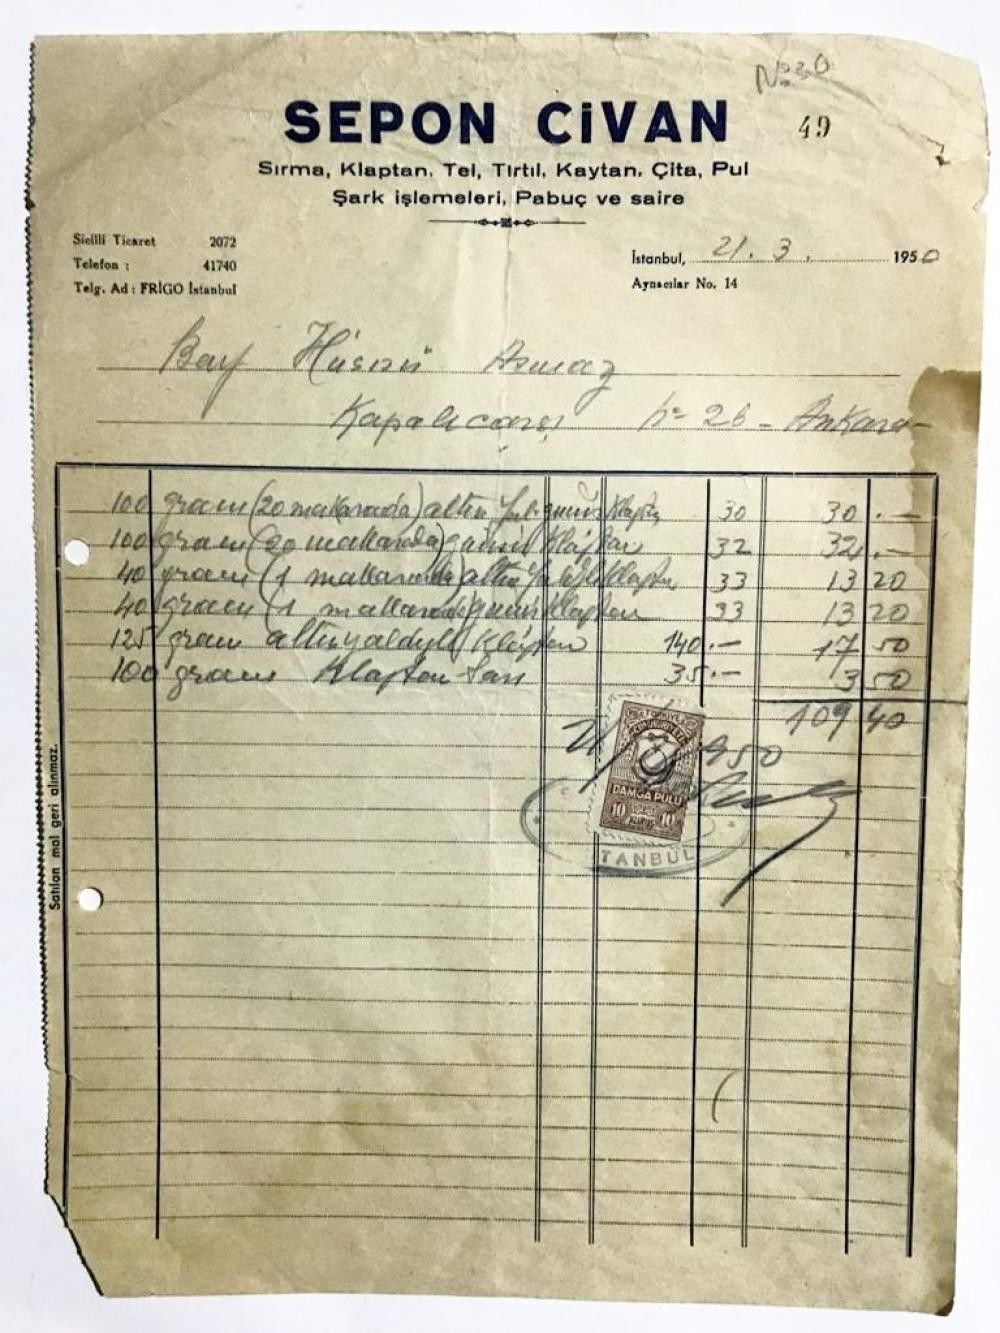 No 30
SEPON CiVAN 49
Sırma, Klaptan, Tel, Tırtıl, Kaytan, Çita, Pul
Şark işlemeleri, Pabuç ve saire
Sicilli Ticaret 2072
Telefon : 41740
Telg. Ad : FRİGO İstanbul
İstanbul, 21.3. 1950
Aynacılar No. 14
Bay Hüsnü
Kapalıcarşı No 26 - Ankara
100 gram (20 makarada) altın Klaptan 30 30.-
100 gram (20 makarada) gümüş Klaptan 32 32.-
40 gram (1 makarada) altın Klaptan 33 13 20
40 gram (1 makarada) gümüş Klaptan 33 13 20
125 gram altın yaldızlı Klaptan 140.- 17 50
100 gram Klaptan Sarı 35.- 3 50
109 40
TÜRKİYE
CUMHURİYETİ
DAMGA PULU
10 KURUŞ 10
950
İSTANBUL
Satılan mal geri alınmaz.